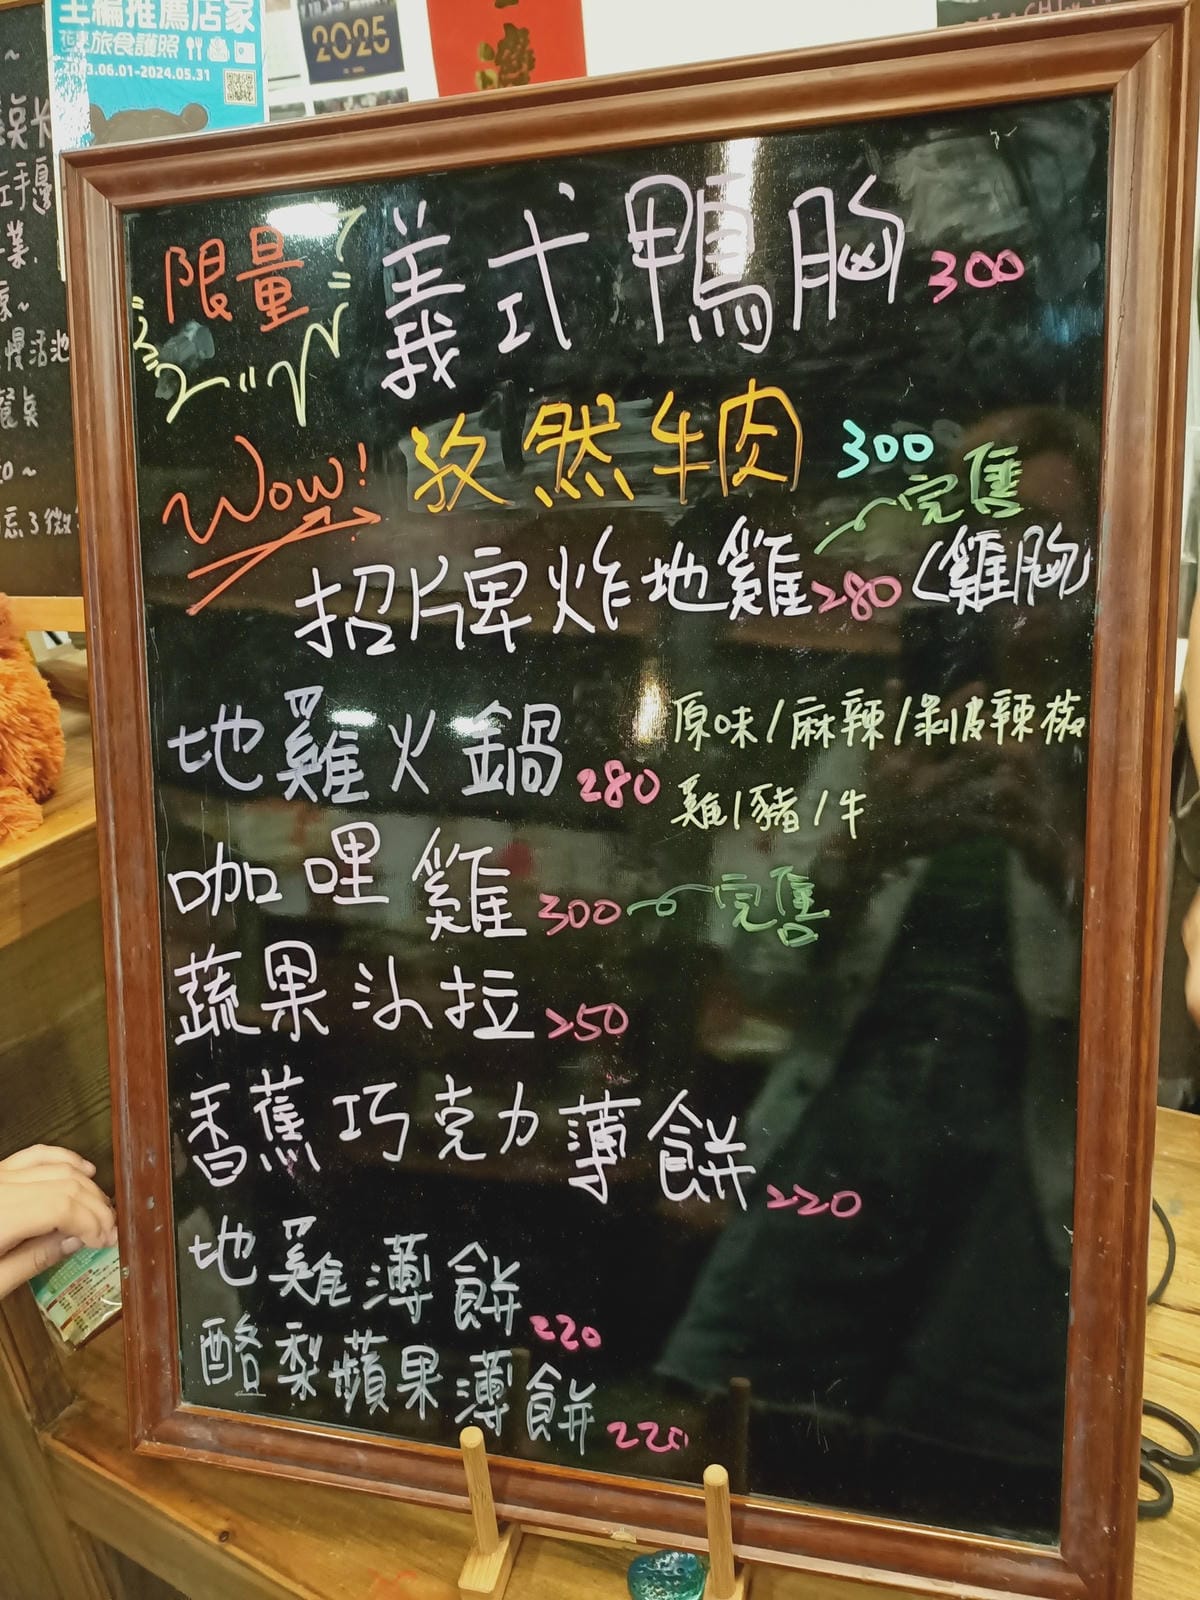 主編推薦店家
花東旅食護照
2023.06.01-2024.05.31
2025
左手邊
業
慢活池
限量
義式鴨胸 300
Wow!
孜然牛肉 300
完售
招牌炸地雞 280 (雞胸)
地雞火鍋 280
原味/麻辣/剝皮辣椒
雞/豬/牛
咖哩雞 300 完售
蔬果沙拉 250
香蕉巧克力薄餅 220
地雞薄餅 220
酪梨蘋果薄餅 220